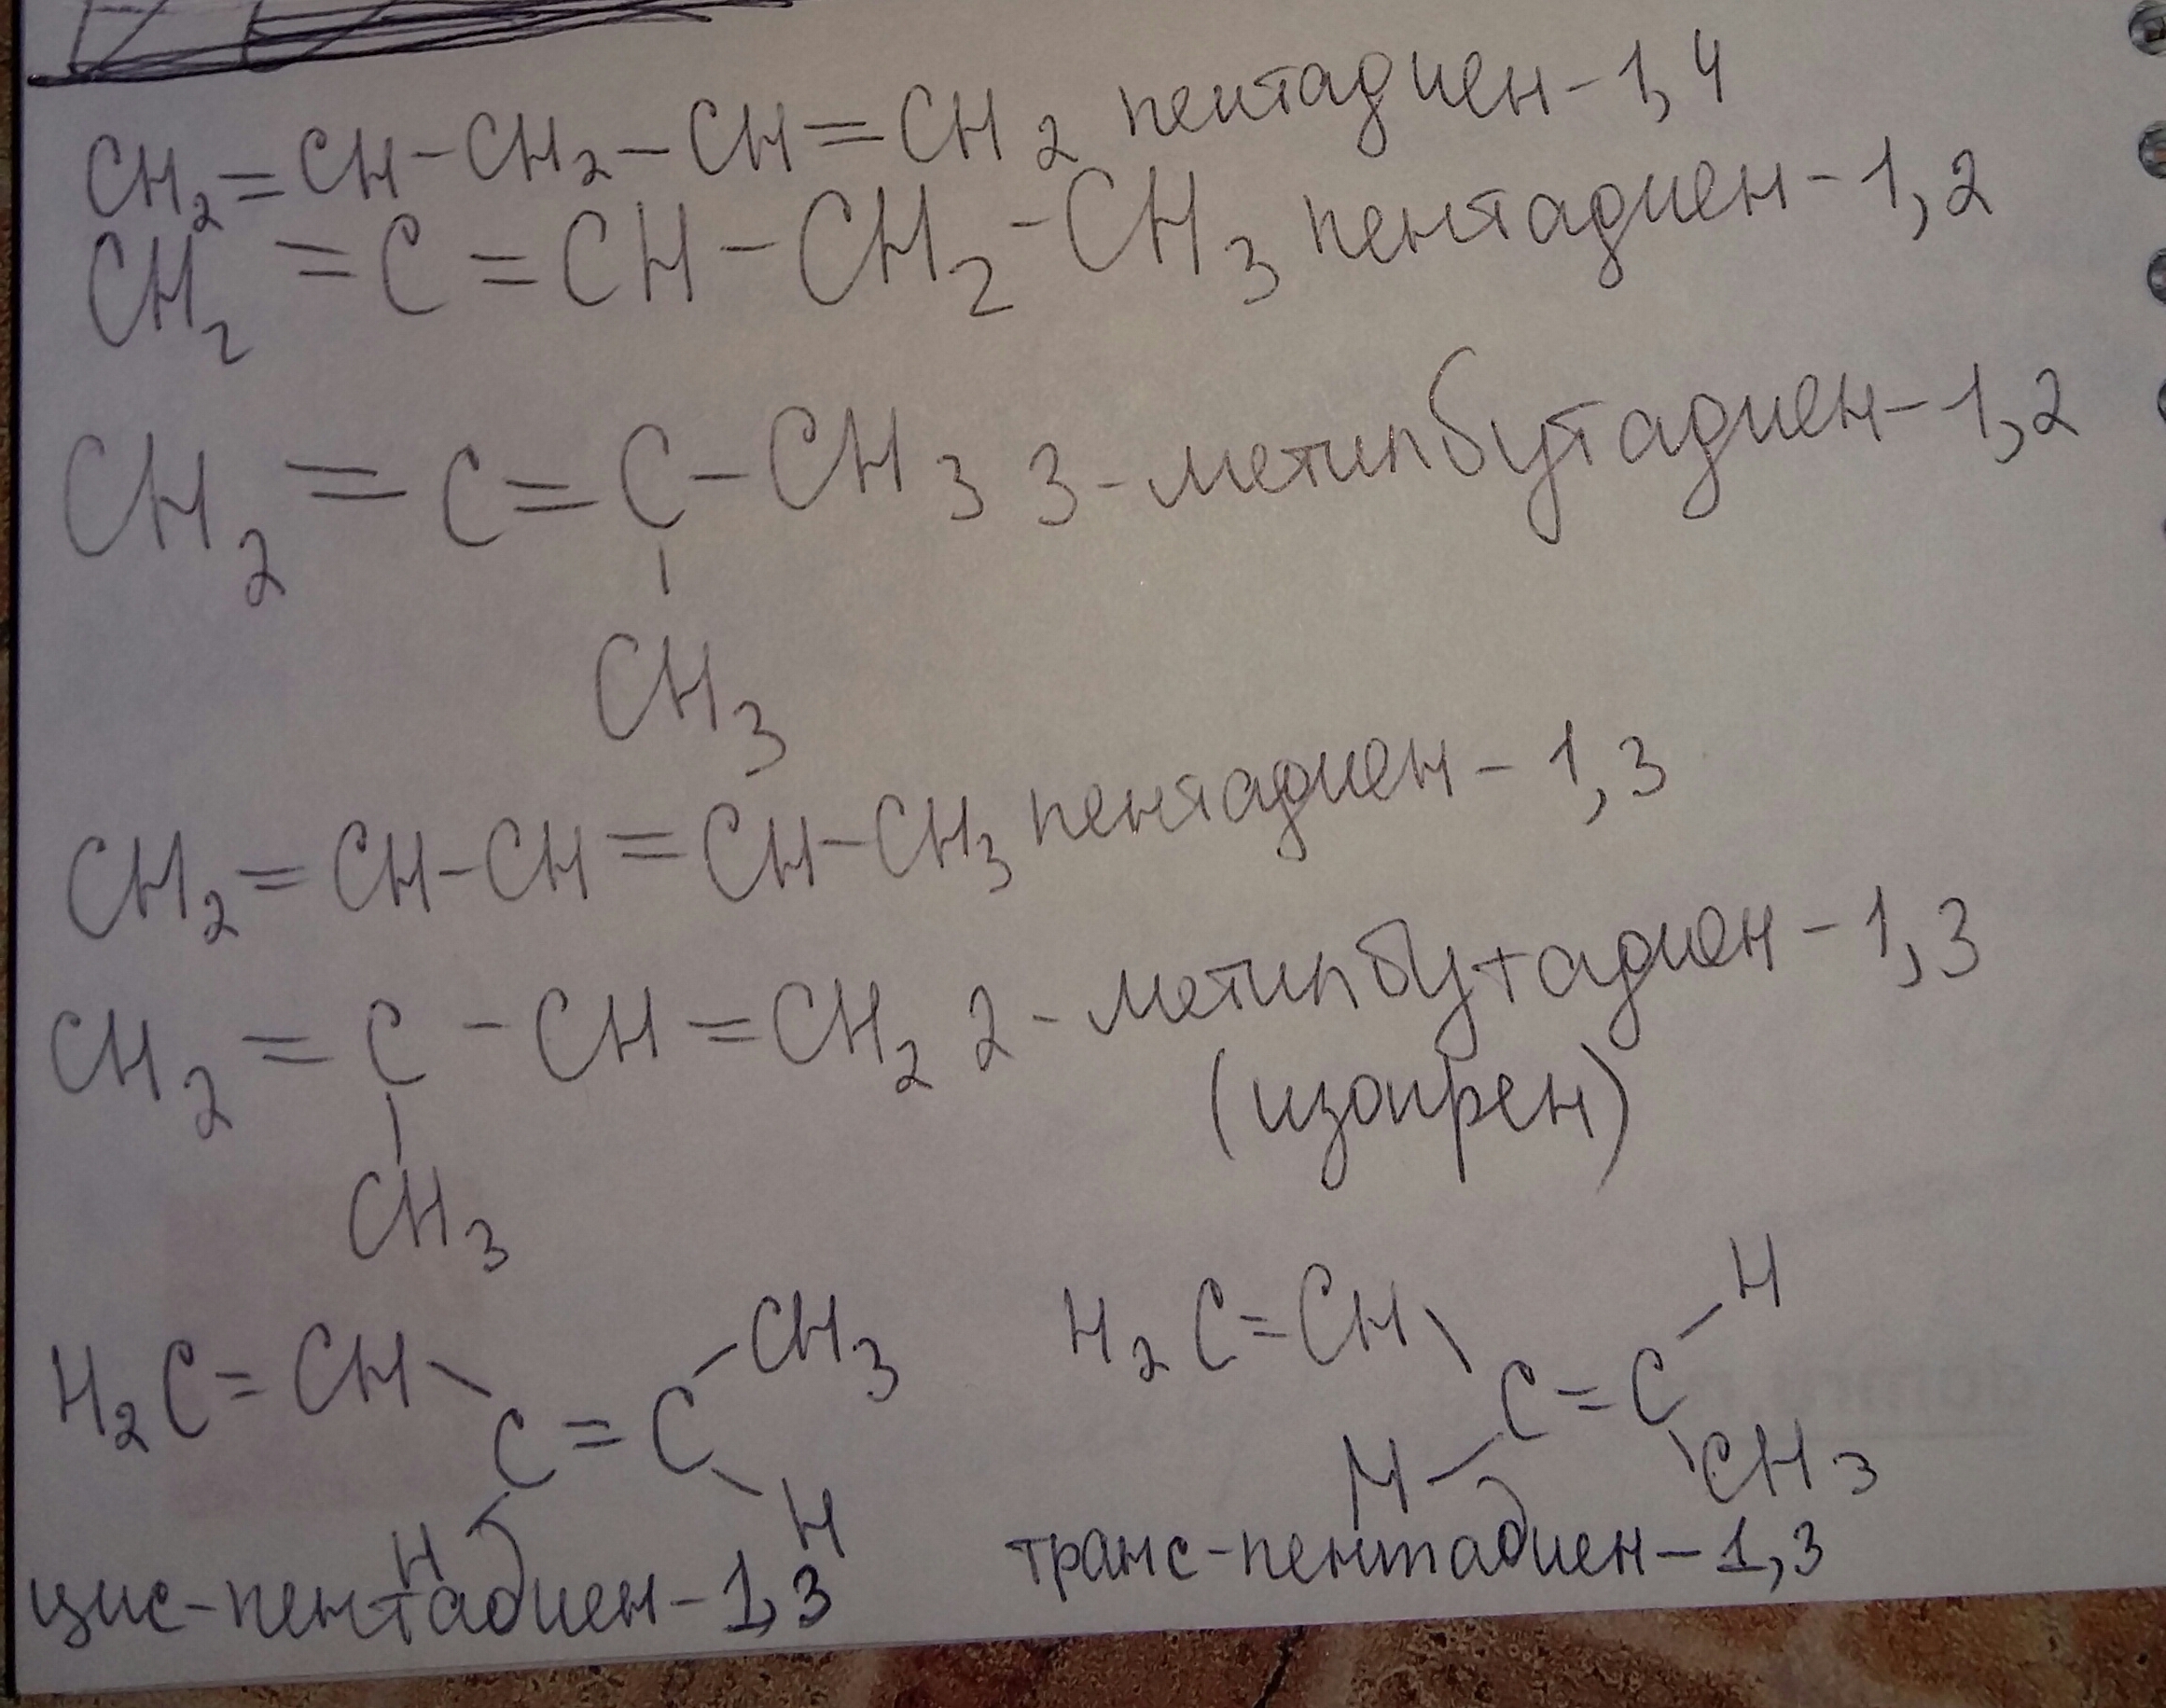 CH₂=CH-CH₂-CH=CH₂ пентадиен-1,4
CH₂=C=CH-CH₂-CH₃ пентадиен-1,2
CH₂=C=C-CH₃ 3-метилбутадиен-1,2
CH₃
CH₂=CH-CH=CH-CH₃ пентадиен-1,3
CH₂=C-CH=CH₂ 2-метилбутадиен-1,3
(изопрен)
CH₃
H₂C=CH CH₃
C=C
H H
цис-пентадиен-1,3
H₂C=CH H
C=C
H CH₃
транс-пентадиен-1,3